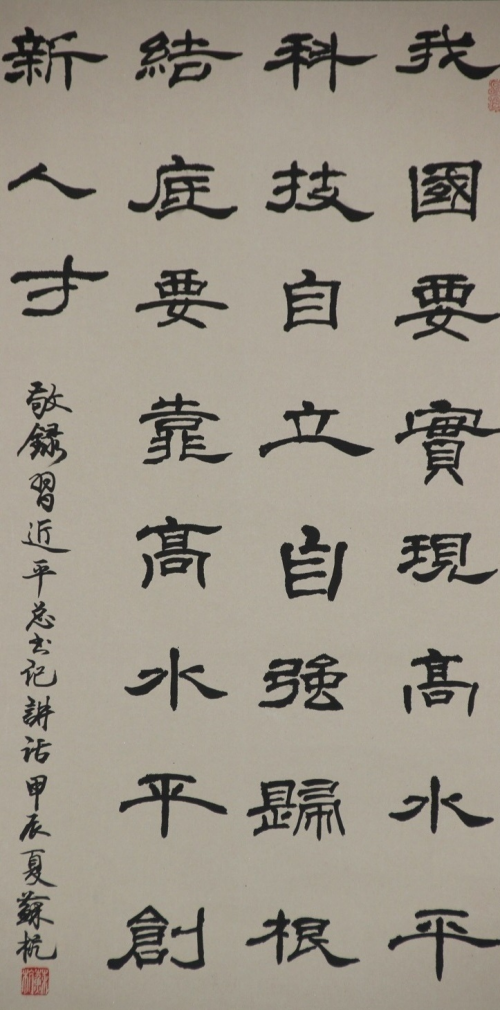 我國要實現高水平
科技自立自強歸根
結底要靠高水平創
新人才
敬錄習近平总书记講话甲辰夏蘇杭